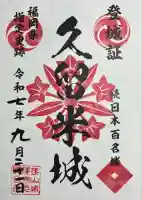 登城証
続日本百名城
久留米城
福岡県
指定史跡
令和七年九月二十一日